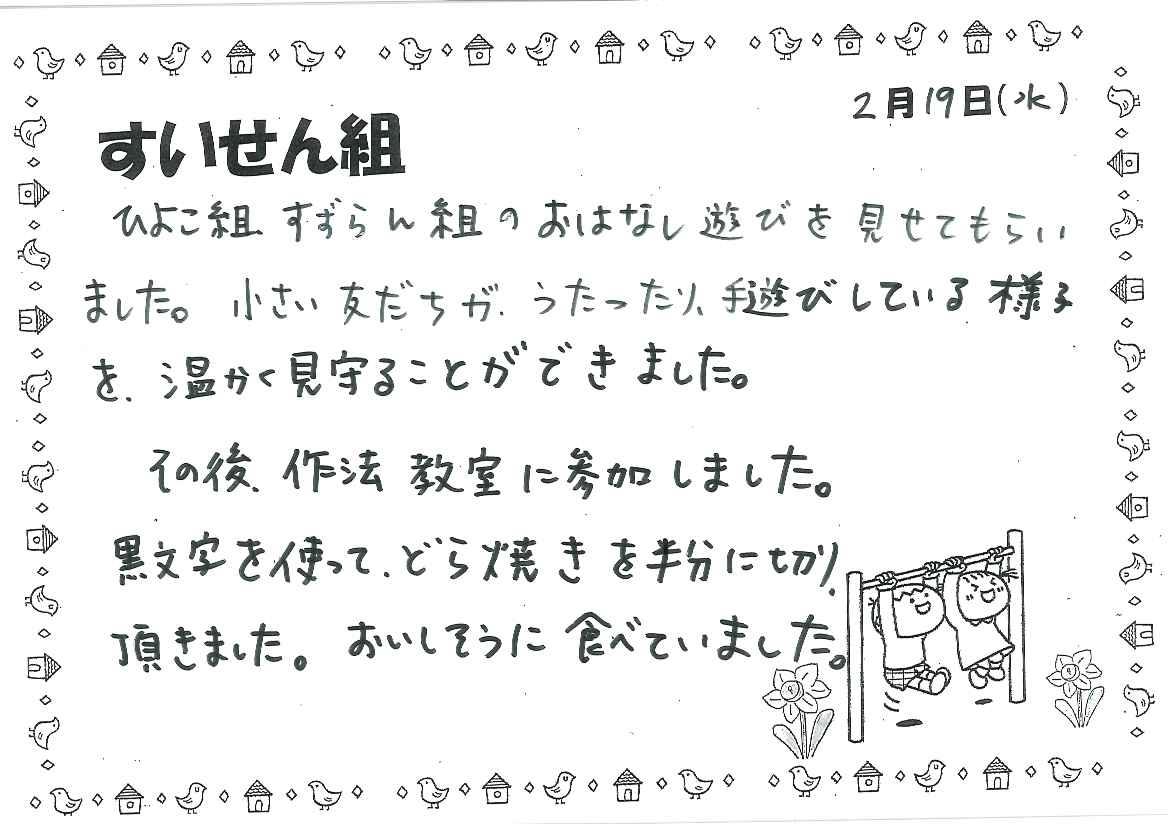 2月19日(水)
すいせん組
ひよこ組、すずらん組のおはなし遊びを見せてもらい
ました。小さい友だちが、うたったり、手遊びしている様子
を、温かく見守ることができました。
その後、作法教室に参加しました。
黒文字を使って、どら焼きを半分に切り、
頂きました。おいしそうに食べていました。